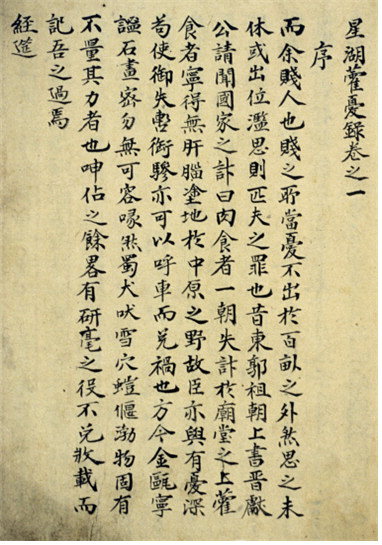 星湖藿憂錄卷之一
序
而余賤人也賤之所當憂不出於百畝之外然思之未
休或出位濫思則匹夫之罪也昔東郭祖朝上書晋獻
公請聞國家之計曰肉食者一朝失計於廟堂之上藿
食者寧得無肝腦塗地於中原之野故臣亦與有憂深
苟使御失轡銜驂亦可以呼車而免禍也方今金甌寧
謐石畫密勿無可容喙然蜀犬吠雪穴螘偃渤物固有
不量其力者也呻佔之餘畧有研毫之役不免收載而
記吾之過焉
經筵